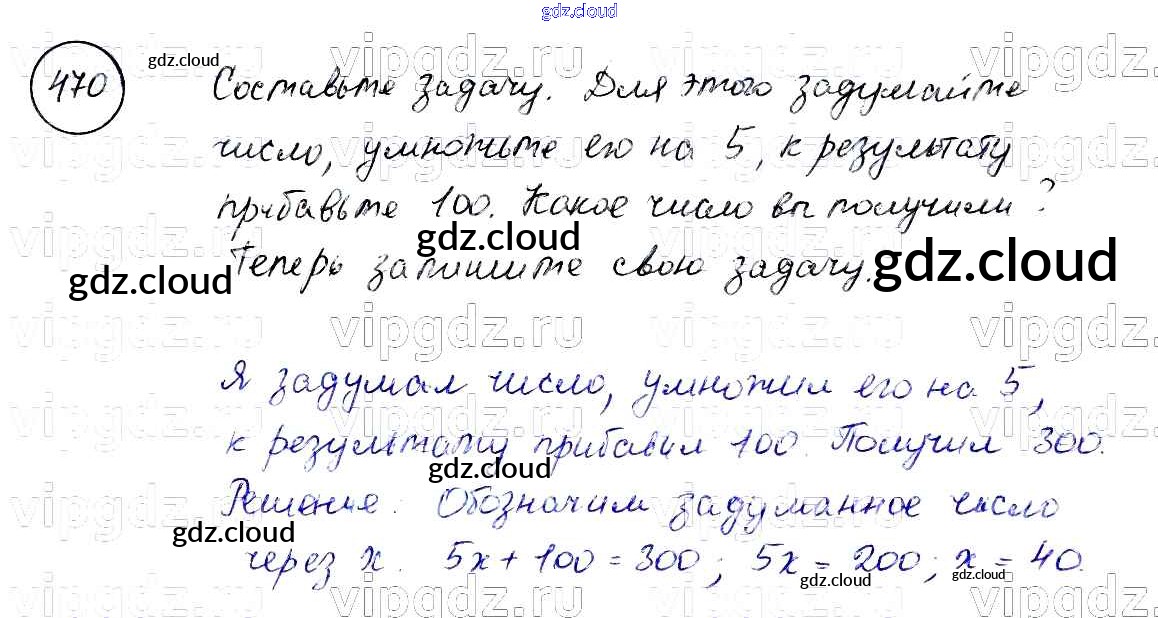 gdz.cloud
470
gdz.cloud
Составьте задачу. Для этого задумайте
число, умножьте его на 5, к результату
прибавьте 100. Какое число вы получили?
gdz.cloud
Теперь запишите свою задачу.
gdz.cloud
gdz.cloud
vipgdz.ru vipgdz.ru vipgdz.ru vipgdz.ru
Я задумал число, умножил его на 5,
к результату прибавил 100. Получил 300.
gdz.cloud
Решение. Обозначим задуманное число
gdz.cloud
через x. 5x + 100 = 300; 5x = 200; x = 40.
gdz.cloud
gdz.cloud